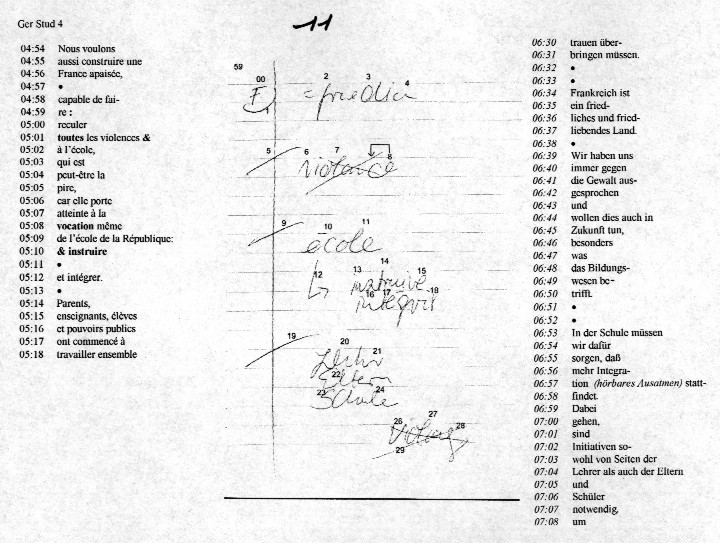 Ger Stud 4
11
04:54 Nous voulons
04:55 aussi construire une
04:56 France apaisée,
04:57 •
04:58 capable de fai-
04:59 re :
05:00 reculer
05:01 toutes les violences &
05:02 à l'école,
05:03 qui est
05:04 peut-être la
05:05 pire,
05:06 car elle porte
05:07 atteinte à la
05:08 vocation même
05:09 de l'école de la République:
05:10 & instruire
05:11 •
05:12 et intégrer.
05:13 •
05:14 Parents,
05:15 enseignants, élèves
05:16 et pouvoirs publics
05:17 ont commencé à
05:18 travailler ensemble
59
00 2 3 4
F =
1
5 6 7 8
violence
9 10 11
école
12 13 14 15
instruire
16 17 18
19 20 21
Lehr
22
Eltern
23 24
Schule
26 27 28
29
06:30 trauen über-
06:31 bringen müssen.
06:32 •
06:33 •
06:34 Frankreich ist
06:35 ein fried-
06:36 liches und fried-
06:37 liebendes Land.
06:38 •
06:39 Wir haben uns
06:40 immer gegen
06:41 die Gewalt aus-
06:42 gesprochen
06:43 und
06:44 wollen dies auch in
06:45 Zukunft tun,
06:46 besonders
06:47 was
06:48 das Bildungs-
06:49 wesen be-
06:50 trifft.
06:51 •
06:52 •
06:53 In der Schule müssen
06:54 wir dafür
06:55 sorgen, daß
06:56 mehr Integra-
06:57 tion (hörbares Ausatmen) statt-
06:58 findet.
06:59 Dabei
07:00 gehen,
07:01 sind
07:02 Initiativen so-
07:03 wohl von Seiten der
07:04 Lehrer als auch der Eltern
07:05 und
07:06 Schüler
07:07 notwendig,
07:08 um